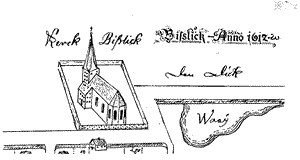 Kerck Bißlick
Bißlick Anno 1612
Den Dick
Waaÿ